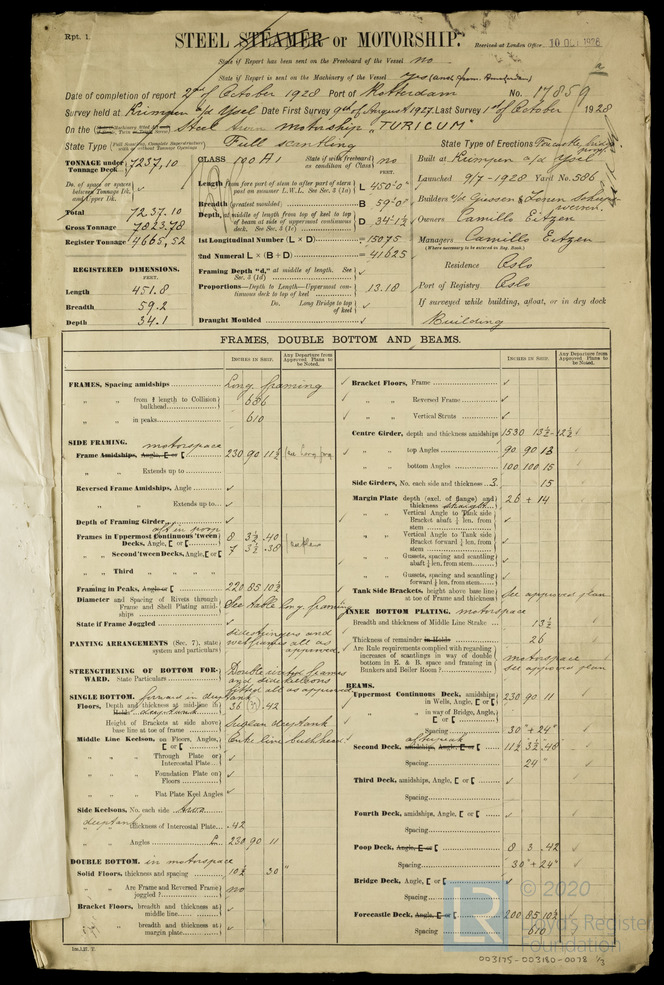 Rpt. 1.
STEEL STEAMER or MOTORSHIP.
Received at London Office 10 OCT 1928
State if Report has been sent on the Freeboard of the Vessel no
State if Report is sent on the Machinery of the Vessel yes (and from Amsterdam)
Date of completion of report 2nd of October 1928 Port of Rotterdam No. 17859
Survey held at Krimpen a/d Ysel Date First Survey 9th of August 1927. Last Survey 1st of October 1928
On the Steel motorship "TURICUM"
State Type Full scantling State Type of Erections Forecastle, bridge, poop
TONNAGE under Tonnage Deck 7237.10
Do. of space or spaces between Tonnage Dk. and Upper Dk. ✓
Total 7237.10
Gross Tonnage 7823.78
Register Tonnage 4665.52
REGISTERED DIMENSIONS.
FEET.
Length 451.8
Breadth 59.2
Depth 34.1
CLASS 100 A1 State if with freeboard as condition of Class no
Length from fore part of stem to after part of stern post on summer L.W.L. See Sec. 3 (1a) L 450'0"
Breadth (greatest moulded) B 59'0"
Depth, at middle of length from top of keel to top of beam at side of uppermost continuous deck. See Sec. 3 (1c) D 34'1½
1st Longitudinal Number (L × D) = 15075
2nd Numeral L × (B + D) = 41625
Framing Depth "d," at middle of length. See Sec. 3 (1d) ✓
Proportions—Depth to Length—Uppermost continuous deck to top of keel 13.18
Do. Long Bridge to top of keel ✓
Draught Moulded
Built at Krimpen a/d Ysel
Launched 9/7-1928 Yard No. 586
Builders
Owners Camillo Eitzen
Managers Camillo Eitzen
(Where necessary to be entered in Reg. Book.)
Residence Oslo
Port of Registry Oslo
If surveyed while building, afloat, or in dry dock
Building
FRAMES, DOUBLE BOTTOM AND BEAMS.
INCHES IN SHIP. Any Departure from Approved Plans to be Noted.
INCHES IN SHIP. Any Departure from Approved Plans to be Noted.
FRAMES, Spacing amidships Long framing
" " from ⅕ length to Collision bulkhead 686
" " in peaks 610
SIDE FRAMING. motorspace
Frame Amidships, Angle, E or [ 230 90 11½
" " Extends up to ✓
Reversed Frame Amidships, Angle ✓
" " Extends up to ✓
Depth of Framing Girder ✓
aft in poop
Frames in Uppermost Continuous 'tween Decks, Angle, [ or [ 8 3½ .40
" Second 'tween Decks, Angle, [ or [ 7 3½ .38
" Third " " "
Framing in Peaks, Angle or [ 220 85 10½
Diameter and Spacing of Rivets through Frame and Shell Plating amidships See table long. framing
State if Frame Joggled ✓
PANTING ARRANGEMENTS (Sec. 7), state system and particulars sidestringers and webframes all as approved
STRENGTHENING OF BOTTOM FORWARD. State Particulars Double riveted frames and side keelsons fitted all as approved
SINGLE BOTTOM. forward in deeptank
Floors, Depth and thickness at mid-line in Holds deeptank 36 .42
Height of Brackets at side above base line at toe of frame deeptank
Middle Line Keelson, on Floors, Angles, [ or [ Centre line bulkhead
" " Through Plate or Intercostal Plate ✓
" " Foundation Plate on Floors ✓
" " Flat Plate Keel Angles ✓
Side Keelsons, No. each side two
deeptank
" " thickness of Intercostal Plate .42
" " Angles [ 230 90 11
DOUBLE BOTTOM. in motorspace
Solid Floors, thickness and spacing 10½ 30"
" " Are Frame and Reversed Frame joggled? no
Bracket Floors, breadth and thickness at middle line ✓
" " breadth and thickness at margin plate ✓
Bracket Floors, Frame ✓
" " Reversed Frame ✓
" " Vertical Struts ✓
Centre Girder, depth and thickness amidships 1530 13½-12½
" " top Angles 90 90 13
" " bottom Angles 100 100 15
Side Girders, No. each side and thickness 3 15
Margin Plate depth (excl. of flange) and thickness straight 26 + 14
" " Vertical Angle to Tank side Bracket abaft ¼ len. from stem ✓
" " Vertical Angle to Tank side Bracket forward ¼ len. from stem ✓
" " Gussets, spacing and scantling abaft ¼ len. from stem ✓
" " Gussets, spacing and scantling forward ¼ len. from stem ✓
Tank Side Brackets, height above base line at toe of Frame and thickness See approved plan
INNER BOTTOM PLATING. motorspace
Breadth and thickness of Middle Line Strake 13½
Thickness of remainder in Holds 26
Are Rule requirements complied with regarding increases of scantlings in way of double bottom in E. & B. space and framing in Bunkers and Boiler Room? motorspace see approved plan
BEAMS.
Uppermost Continuous Deck, amidships in Wells, Angle, [ or [ 230 90 11
" " in way of Bridge, Angle, [ or [ ✓
Spacing 30" + 24"
afterpeak
Second Deck, amidships, Angle, [ or [ 11½ 3½ .48
Spacing 24"
Third Deck, amidships, Angle, [ or [ ✓
Spacing
Fourth Deck, amidships, Angle, [ or [ ✓
Spacing
Poop Deck, Angle, [ or [ 8 3 .42
Spacing 30" + 24"
Bridge Deck, Angle, [ or [ ✓
Spacing
Forecastle Deck, Angle, [ or [ 200 85 10½
Spacing 610
© 2020
LR
Lloyd's Register
Foundation
003175-003180-0078 1/3